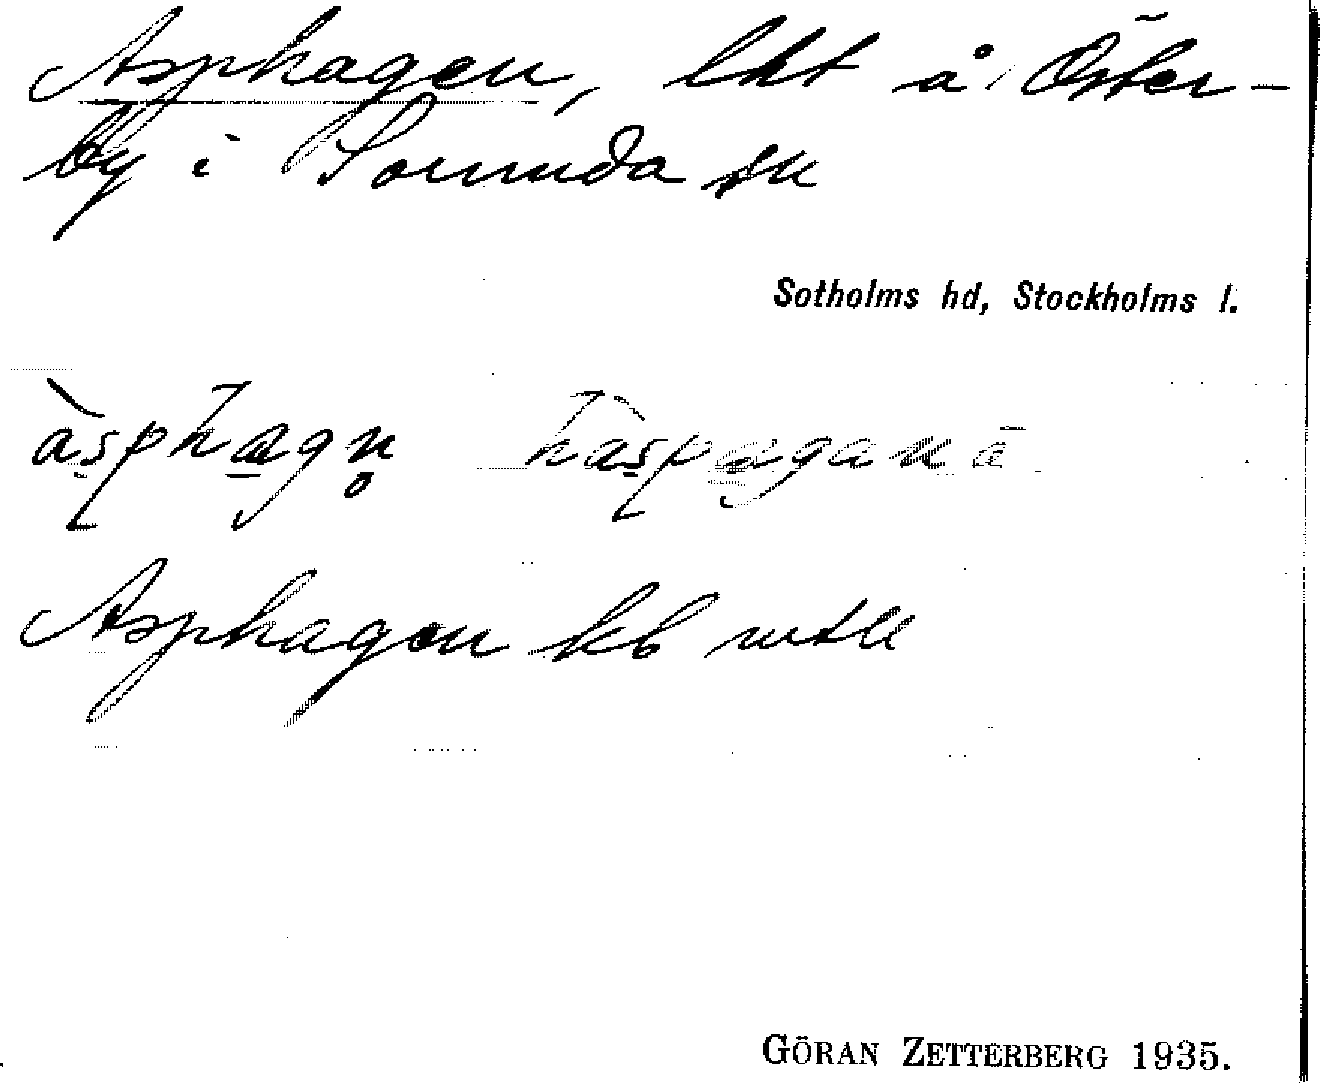 Asphagen, lht å Öster-
by i Sorunda sn
Sotholms hd, Stockholms l.
àsphagn̥ haspagana
Asphagen kb
GÖRAN ZETTERBERG 1935.